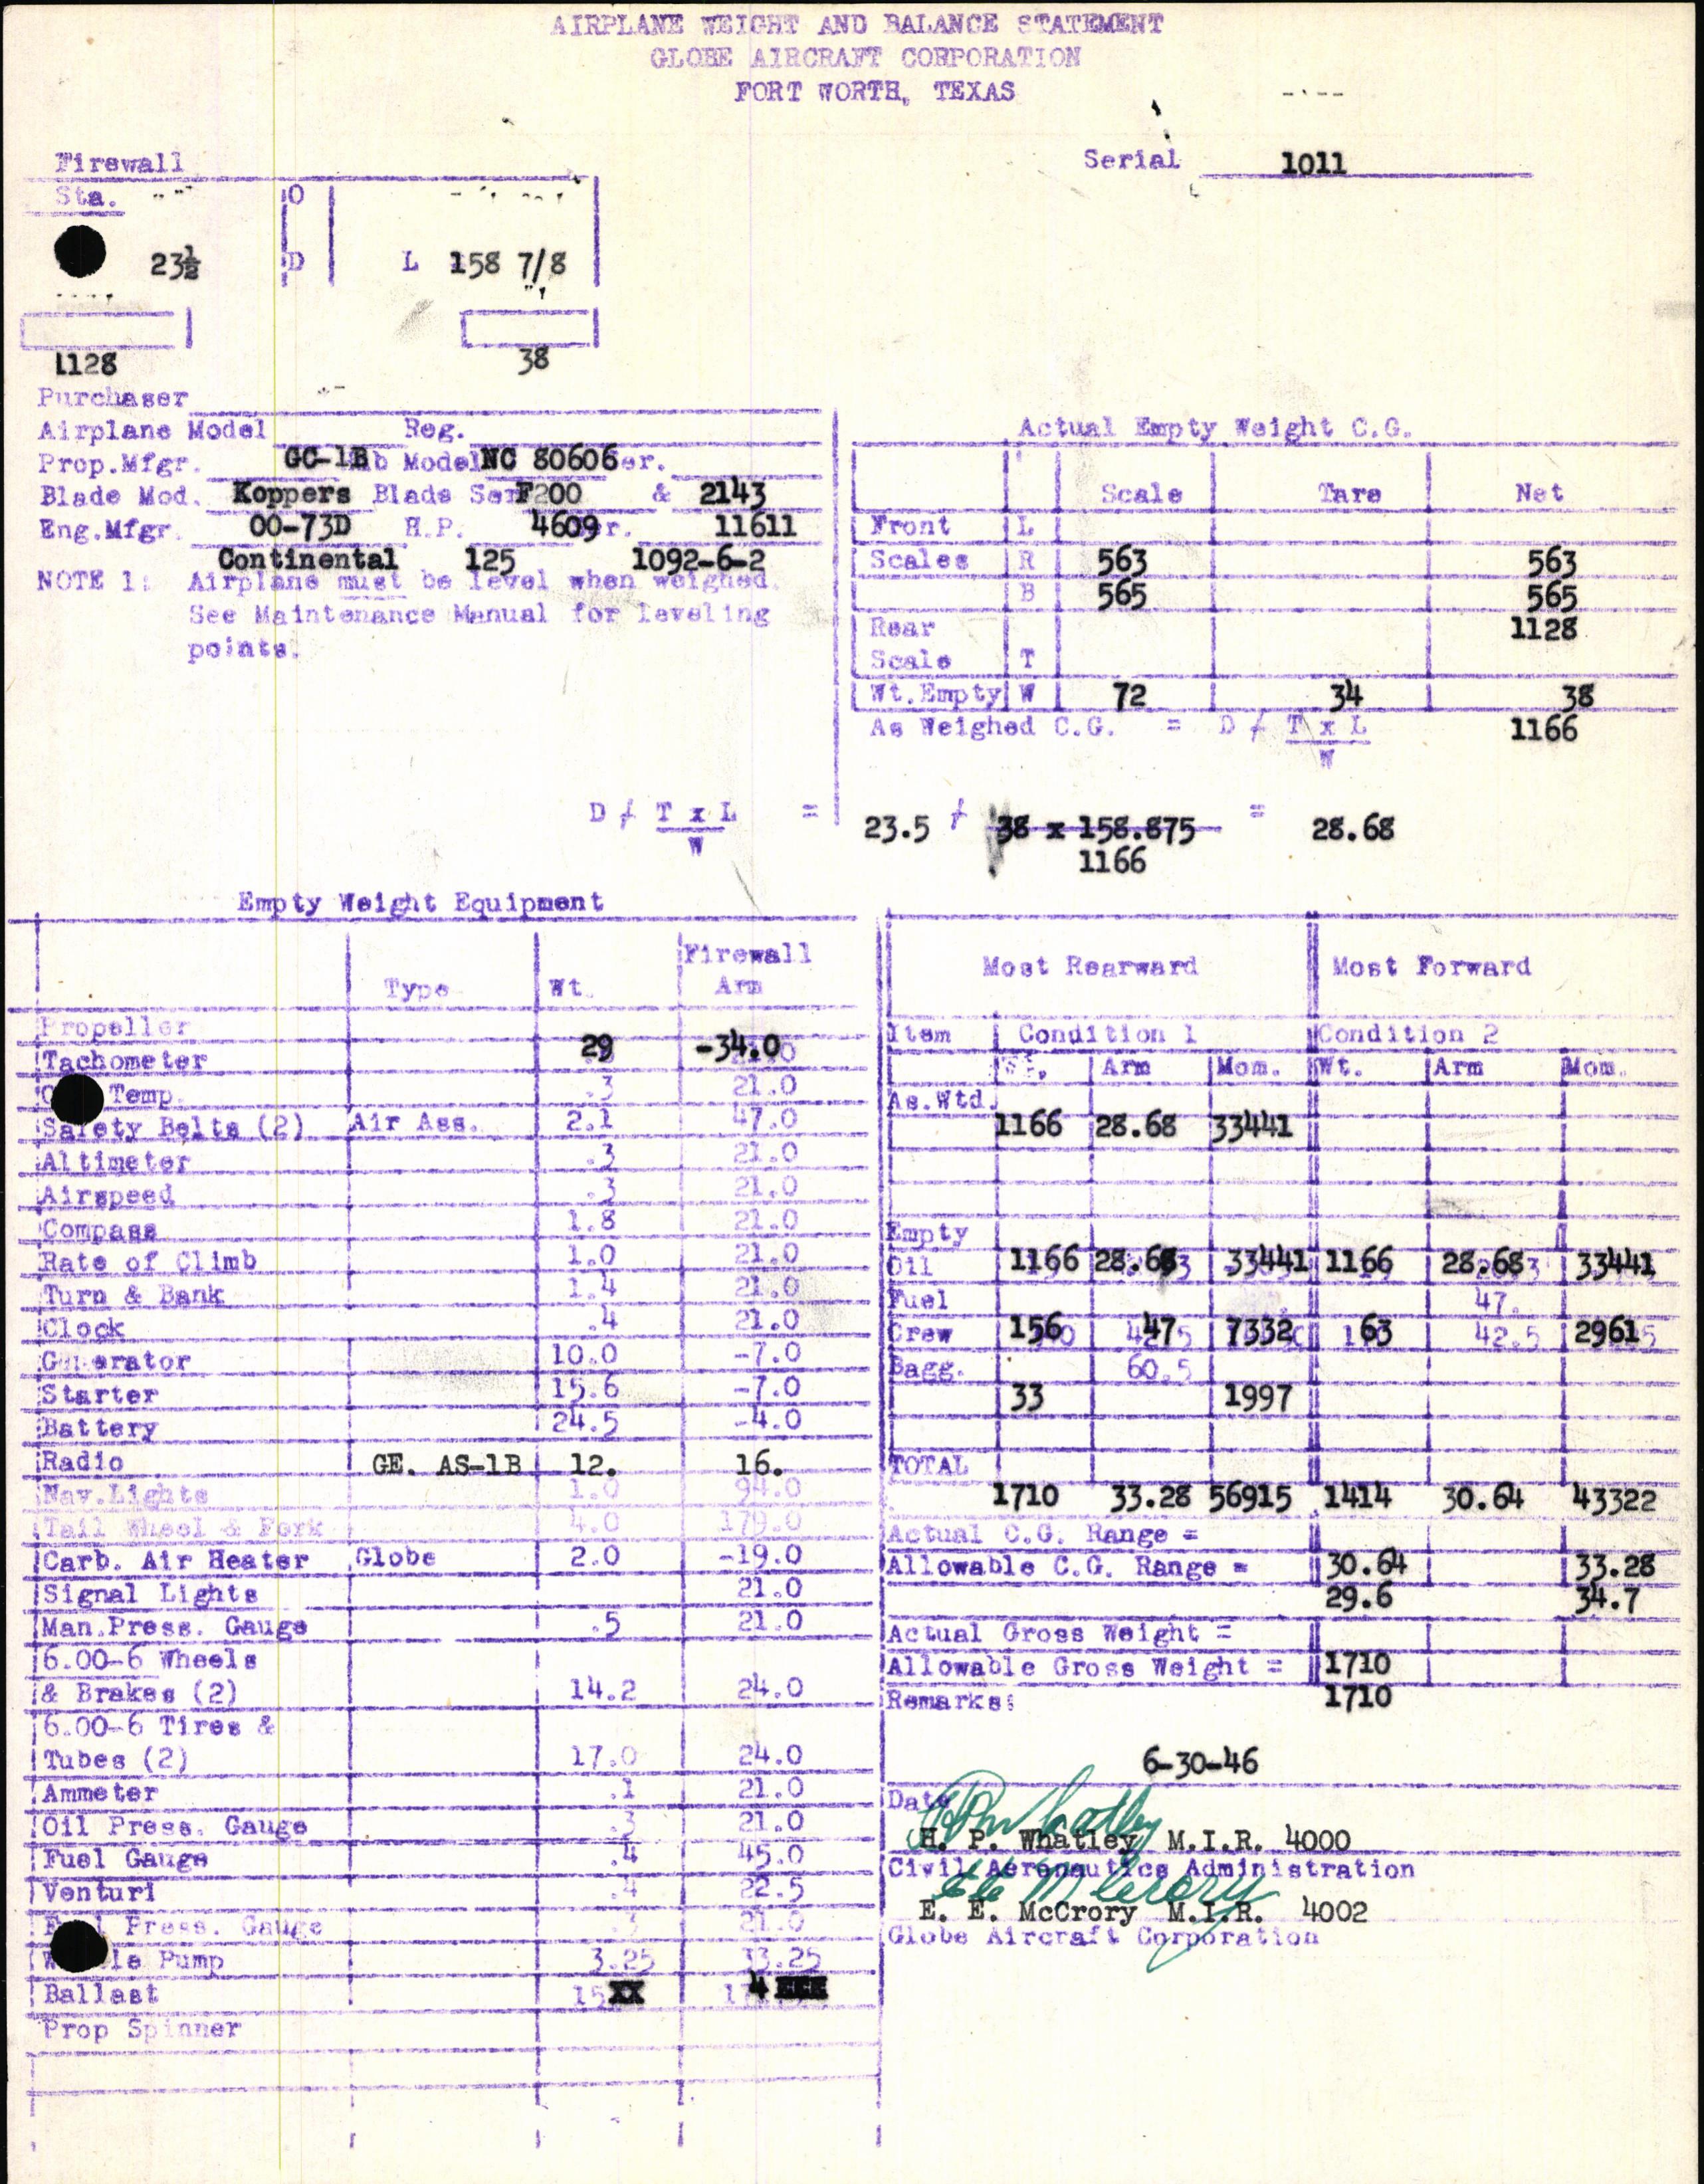 AIRPLANE WEIGHT AND BALANCE STATEMENT
GLOBE AIRCRAFT CORPORATION
FORT WORTH, TEXAS
Firewall
Serial 1011
Sta. O
23½ D L 158 7/8
1128 38
Purchaser
Airplane Model Reg.
Prop.Mfgr. GC-1B Model NC 80606 er.
Blade Mod. Koppers Blade Ser F200 & 2143
Eng.Mfgr. 00-73D H.P. 4609 er. 11611
Continental 125 1092-6-2
NOTE 1: Airplane must be level when weighed.
See Maintenance Manual for leveling
points.
Actual Empty Weight C.G.
Scale Tare Net
Front L
Scales R 563 563
B 565 565
Rear 1128
Scale T
Wt.Empty W 72 34 38
As Weighed C.G. = D / T x L 1166
W
D / T x L = 23.5 / 38 x 158.875 = 28.68
W 1166
Empty Weight Equipment
Type Wt. Firewall Arm
Propeller
Tachometer 29 -34.0
Temp. .3 21.0
Safety Belts (2) Air Ass. 2.1 47.0
Altimeter .3 21.0
Airspeed .3 21.0
Compass 1.8 21.0
Rate of Climb 1.0 21.0
Turn & Bank 1.4 21.0
Clock .4 21.0
Generator 10.0 -7.0
Starter 15.6 -7.0
Battery 24.5 -4.0
Radio GE. AS-1B 12. 16.
Nav.Lights 1.0 94.0
Tail Wheel & Fork 4.0 179.0
Carb. Air Heater Globe 2.0 -19.0
Signal Lights 21.0
Man.Press. Gauge .5 21.0
6.00-6 Wheels
& Brakes (2) 14.2 24.0
6.00-6 Tires &
Tubes (2) 17.0 24.0
Ammeter .1 21.0
Oil Press. Gauge .3 21.0
Fuel Gauge .4 45.0
Venturi .4 22.5
Press. Gauge .3 21.0
Pump 3.25 33.25
Ballast
Prop Spinner
Most Rearward Most Forward
Item Condition 1 Condition 2
Wt. Arm Mom. Wt. Arm Mom.
As.Wtd.
1166 28.68 33441
Empty
Oil 1166 28.68 33441 1166 28.68 33441
Fuel 47.
Crew 156 47 7332 63 42.5 2961
Bagg. 60.5
33 1997
TOTAL
1710 33.28 56915 1414 30.64 43322
Actual C.G. Range =
Allowable C.G. Range = 30.64 33.28
29.6 34.7
Actual Gross Weight =
Allowable Gross Weight = 1710
Remarks: 1710
6-30-46
Date
H. P. Whatley M.I.R. 4000
Civil Aeronautics Administration
E. E. McCrory M.I.R. 4002
Globe Aircraft Corporation